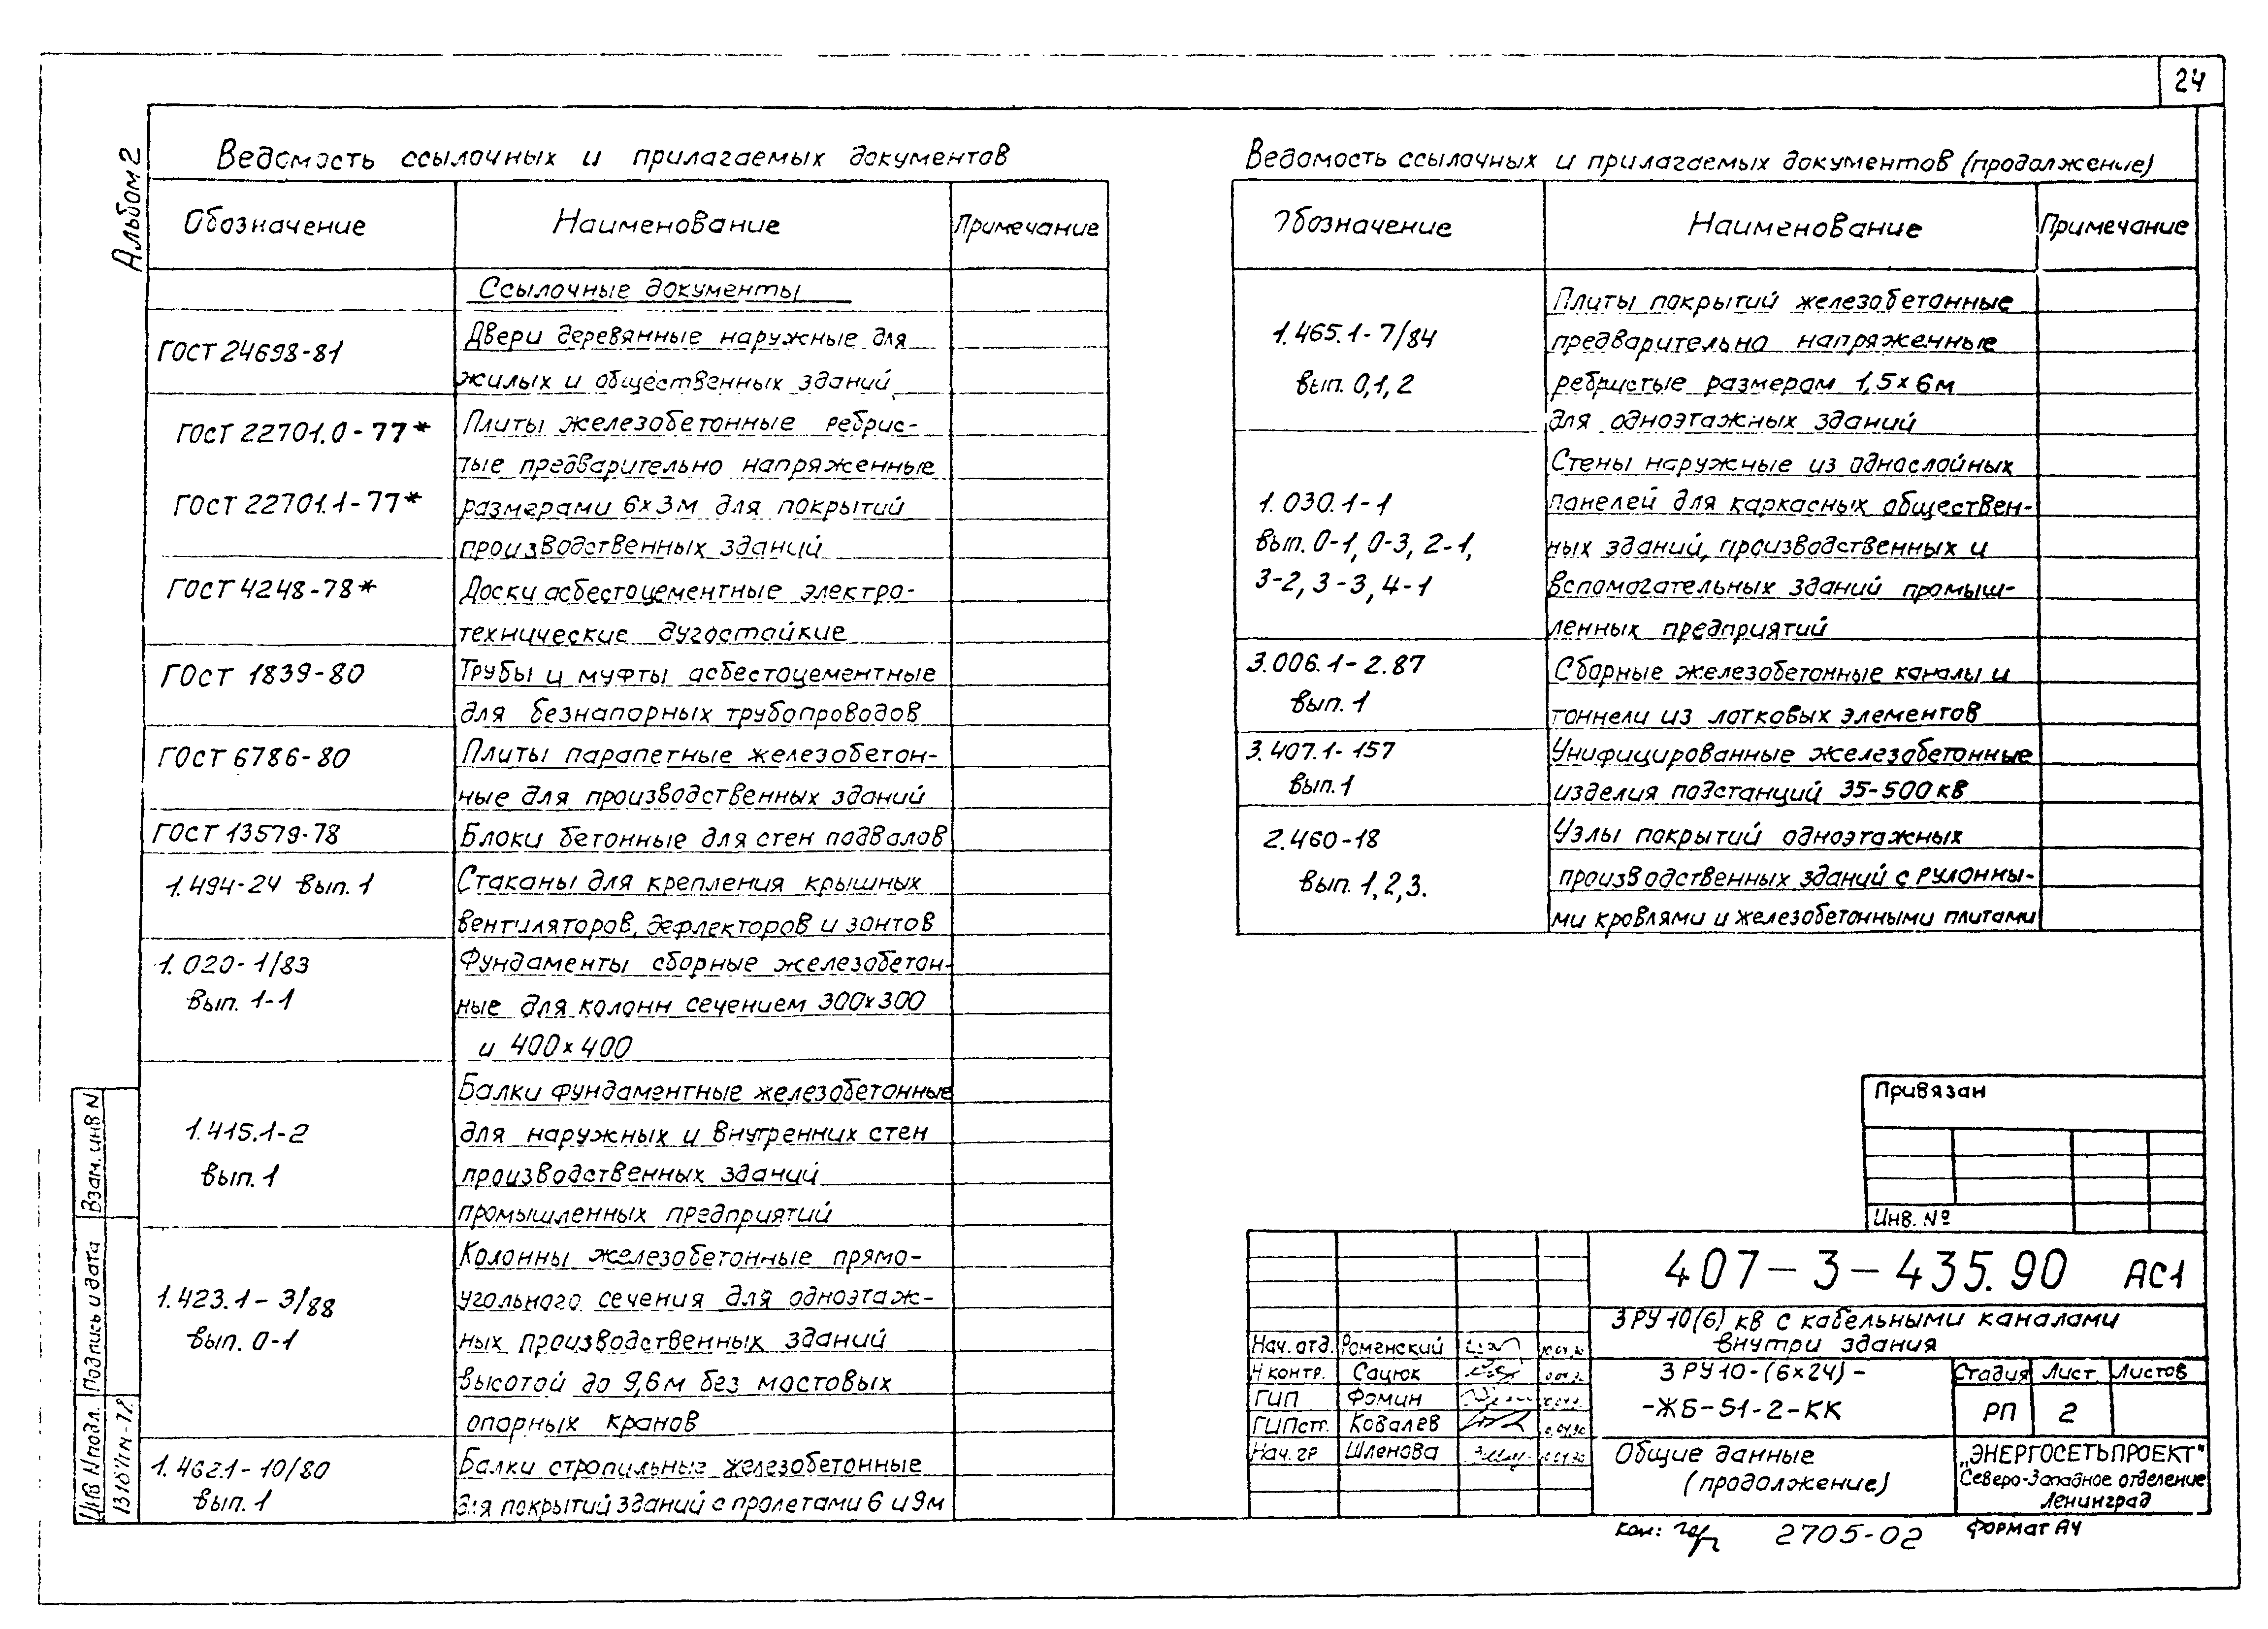 24
Альбом 2
Ведомость ссылочных и прилагаемых документов
Обозначение Наименование Примечание
Ссылочные документы
ГОСТ 24698-81
Двери деревянные наружные для
жилых и общественных зданий
ГОСТ 22701.0-77*
ГОСТ 22701.1-77*
Плиты железобетонные ребрис-
тые предварительно напряженные
размерами 6х3м для покрытий
производственных зданий
ГОСТ 4248-78*
Доски асбестоцементные электро-
технические дугостойкие
ГОСТ 1839-80
Трубы и муфты асбестоцементные
для безнапорных трубопроводов
ГОСТ 6786-80
Плиты парапетные железобетон-
ные для производственных зданий
ГОСТ 13579-78
Блоки бетонные для стен подвалов
1.494-24 вып. 1
Стаканы для крепления крышных
вентиляторов, дефлекторов и зонтов
1.020-1/83
вып. 1-1
Фундаменты сборные железобетон-
ные для колонн сечением 300х300
и 400х400
1.415.1-2
вып. 1
Балки фундаментные железобетонные
для наружных и внутренних стен
производственных зданий
промышленных предприятий
1.423.1-3/88
вып. 0-1
Колонны железобетонные прямо-
угольного сечения для одноэтаж-
ных производственных зданий
высотой до 9,6м без мостовых
опорных кранов
1.462.1-10/80
вып. 1
Балки стропильные железобетонные
для покрытий зданий с пролетами 6 и 9м
Ведомость ссылочных и прилагаемых документов (продолжение)
Обозначение Наименование Примечание
1.465.1-7/84
вып. 0,1,2
Плиты покрытий железобетонные
предварительно напряженные
ребристые размерам 1,5х6м
для одноэтажных зданий
1.030.1-1
вып. 0-1, 0-3, 2-1,
3-2, 3-3, 4-1
Стены наружные из однослойных
панелей для каркасных обществен-
ных зданий, производственных и
вспомогательных зданий промыш-
ленных предприятий
3.006.1-2.87
вып. 1
Сборные железобетонные каналы и
тоннели из лотковых элементов
3.407.1-157
вып. 1
Унифицированные железобетонные
изделия подстанций 35-500кв
2.460-18
вып. 1,2,3.
Узлы покрытий одноэтажных
производственных зданий с рулонны-
ми кровлями и железобетонными плитами
Привязан
Инв. №
407-3-435.90 АС1
ЗРУ 10(6) кв с кабельными каналами
внутри здания
Нач. отд. Роменский
Н контр. Сацюк
ГИП Фомин
ГИПстр. Ковалев
Нач. гр Шленова
ЗРУ10-(6х24)-
-ЖБ-S1-2-КК
Стадия Лист Листов
РП 2
Общие данные
(продолжение)
„ЭНЕРГОСЕТЬПРОЕКТ"
Северо-Западное отделение
Ленинград
кол: 2705-02 Формат А4
Взам. инв N
Подпись и дата
Инв N подл.